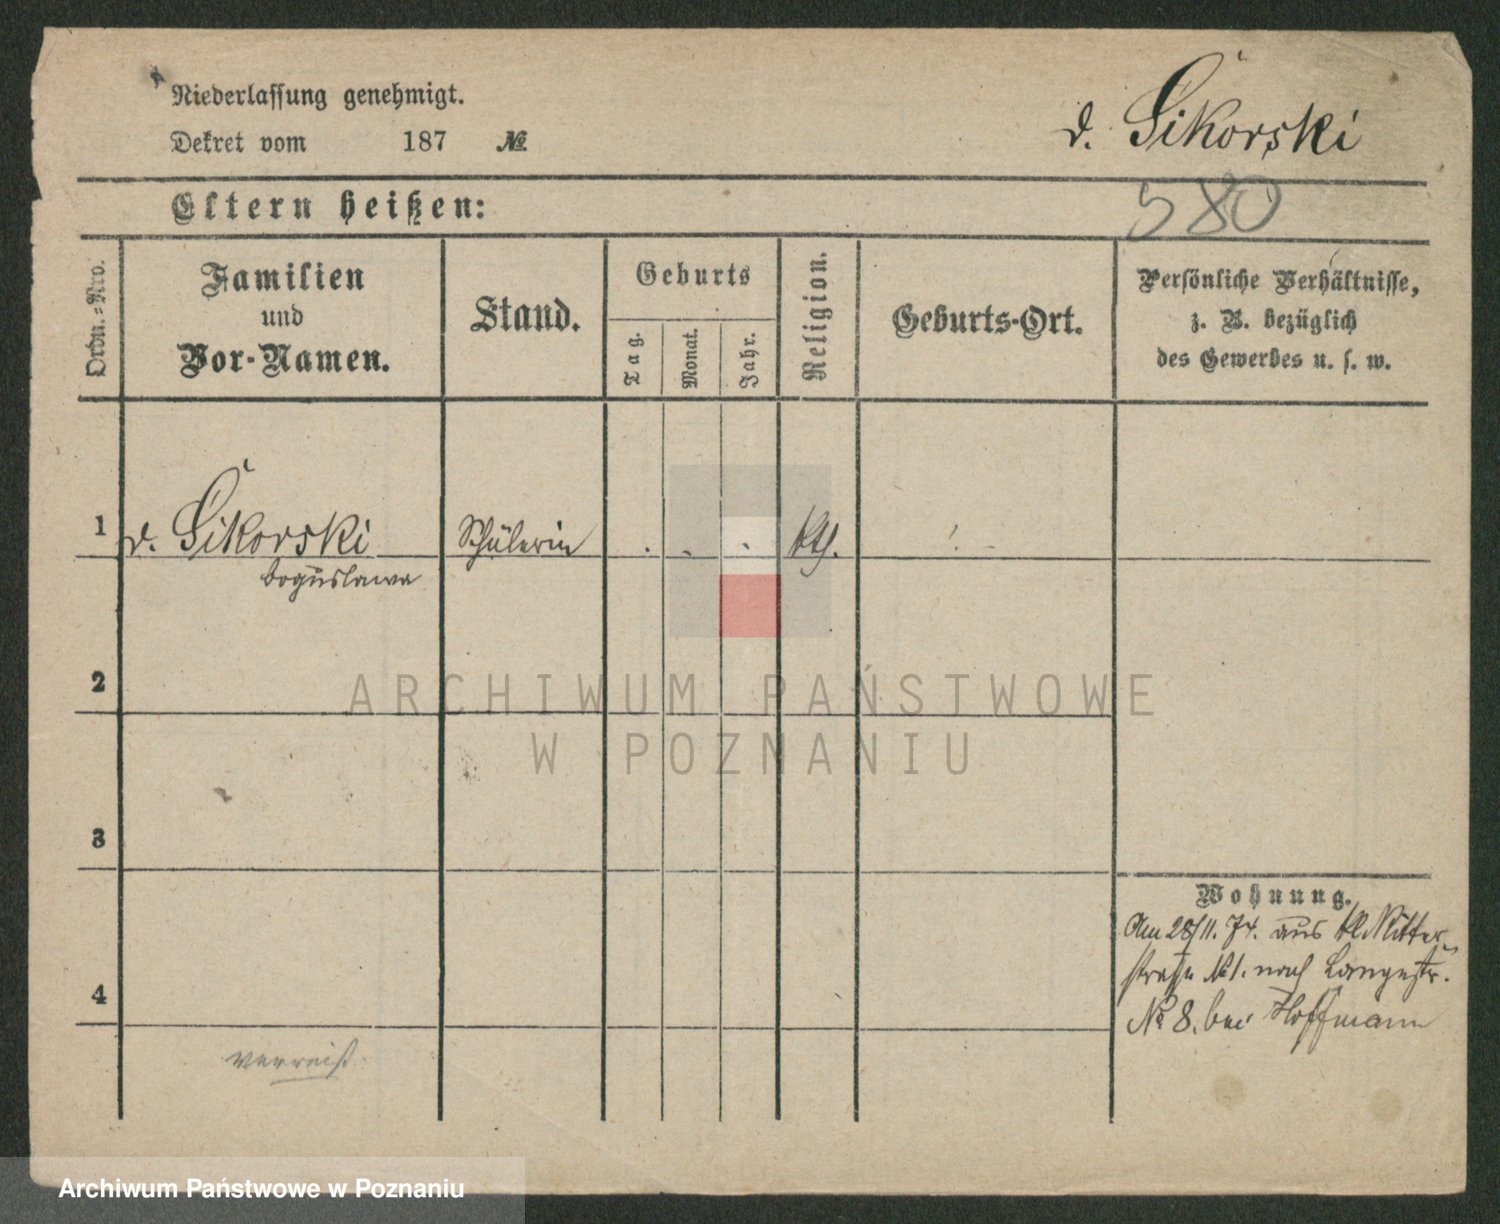 Niederlassung genehmigt.
Dekret vom 187 №
v. Sikorski
Eltern heißen:
580
Ordn.-Nro.
Familien
und
Vor-Namen.
Stand.
Geburts
Tag.
Monat.
Jahr.
Religion.
Geburts-Ort.
Persönliche Verhältnisse,
z. B. bezüglich
des Gewerbes u. s. w.
1 v. Sikorski Schülerin . . . kth.
boguslawa
2
ARCHIWUM PAŃSTWOWE
W POZNANIU
3
4
Wohnung.
Am 28/11. 74. aus kl. Ritter-
straße № 1. nach Langestr.
№ 8. bei Hoffmann
verreist
Archiwum Państwowe w Poznaniu